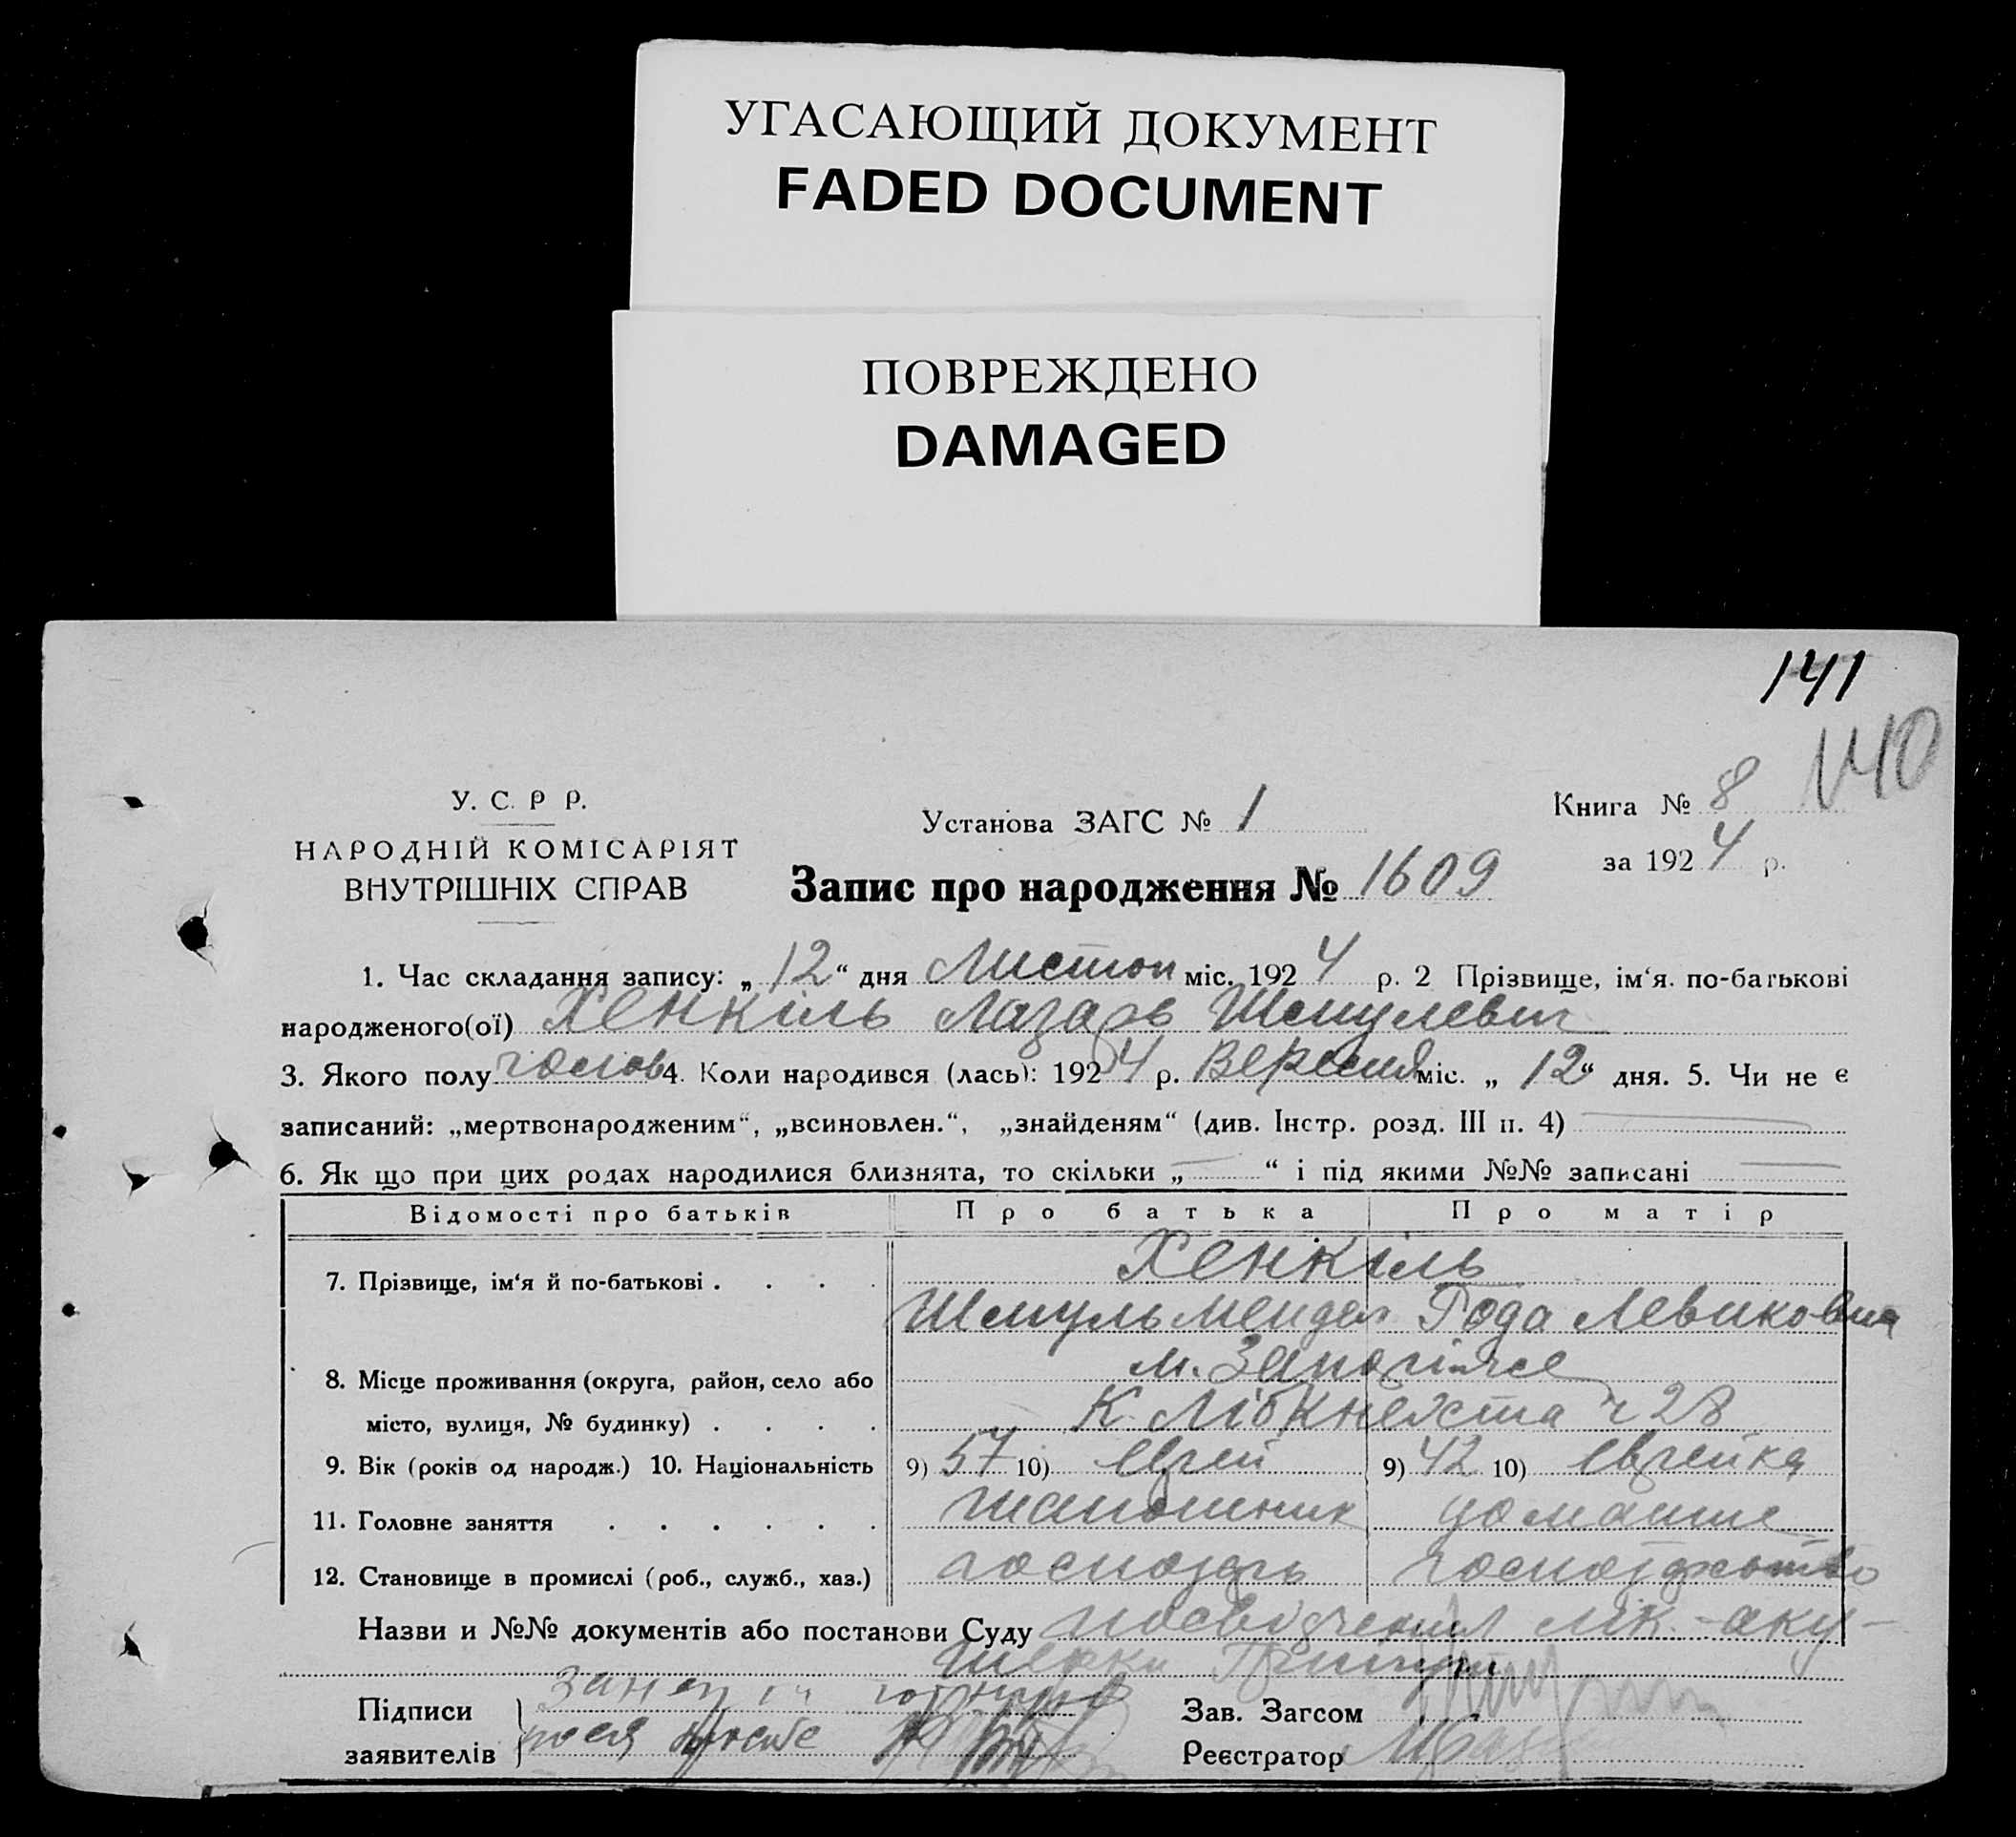 УГАСАЮЩИЙ ДОКУМЕНТ
FADED DOCUMENT
ПОВРЕЖДЕНО
DAMAGED
141
140
У. С. Р Р.
НАРОДНІЙ КОМІСАРІЯТ
ВНУТРІШНІХ СПРАВ
Установа ЗАГС № 1
Книга № 8
за 1924 р.
Запис про народження № 1609
1. Час складання запису: „12“ дня Листоп міс. 1924 р. 2 Прізвище, ім‘я. по-батькові
народженого(ої) Хенкіль Лазарь Шмулевич
3. Якого полу чолов 4. Коли народився (лась): 1924 р. Вересня міс. „12“ дня. 5. Чи не є
записаний: „мертвонародженим“, „всиновлен.“, „знайденям“ (див. Інстр. розд. III п. 4)
6. Як що при цих родах народилися близнята, то скільки „ “ і під якими №№ записані
Відомості про батьків Про батька Про матір
7. Прізвище, ім‘я й по-батькові . . . . Хенкіль
Шмуль Мендел Рода Левиковна
8. Місце проживання (округа, район, село або м. Запоріжжє
місто, вулиця, № будинку) . . . . К. Лібкнехта ч 28
9. Вік (років од народж.) 10. Національність 9) 57 10) Єврей 9) 42 10) Єврейка
11. Головне заняття . . . . . . шапошник домашнє
12. Становище в промислі (роб., служб., хаз.) господарь господарство
Назви и №№ документів або постанови Суду посвідчення лік.-аку-
шерки
Підписи
заявителів
Зав. Загсом
Реєстратор